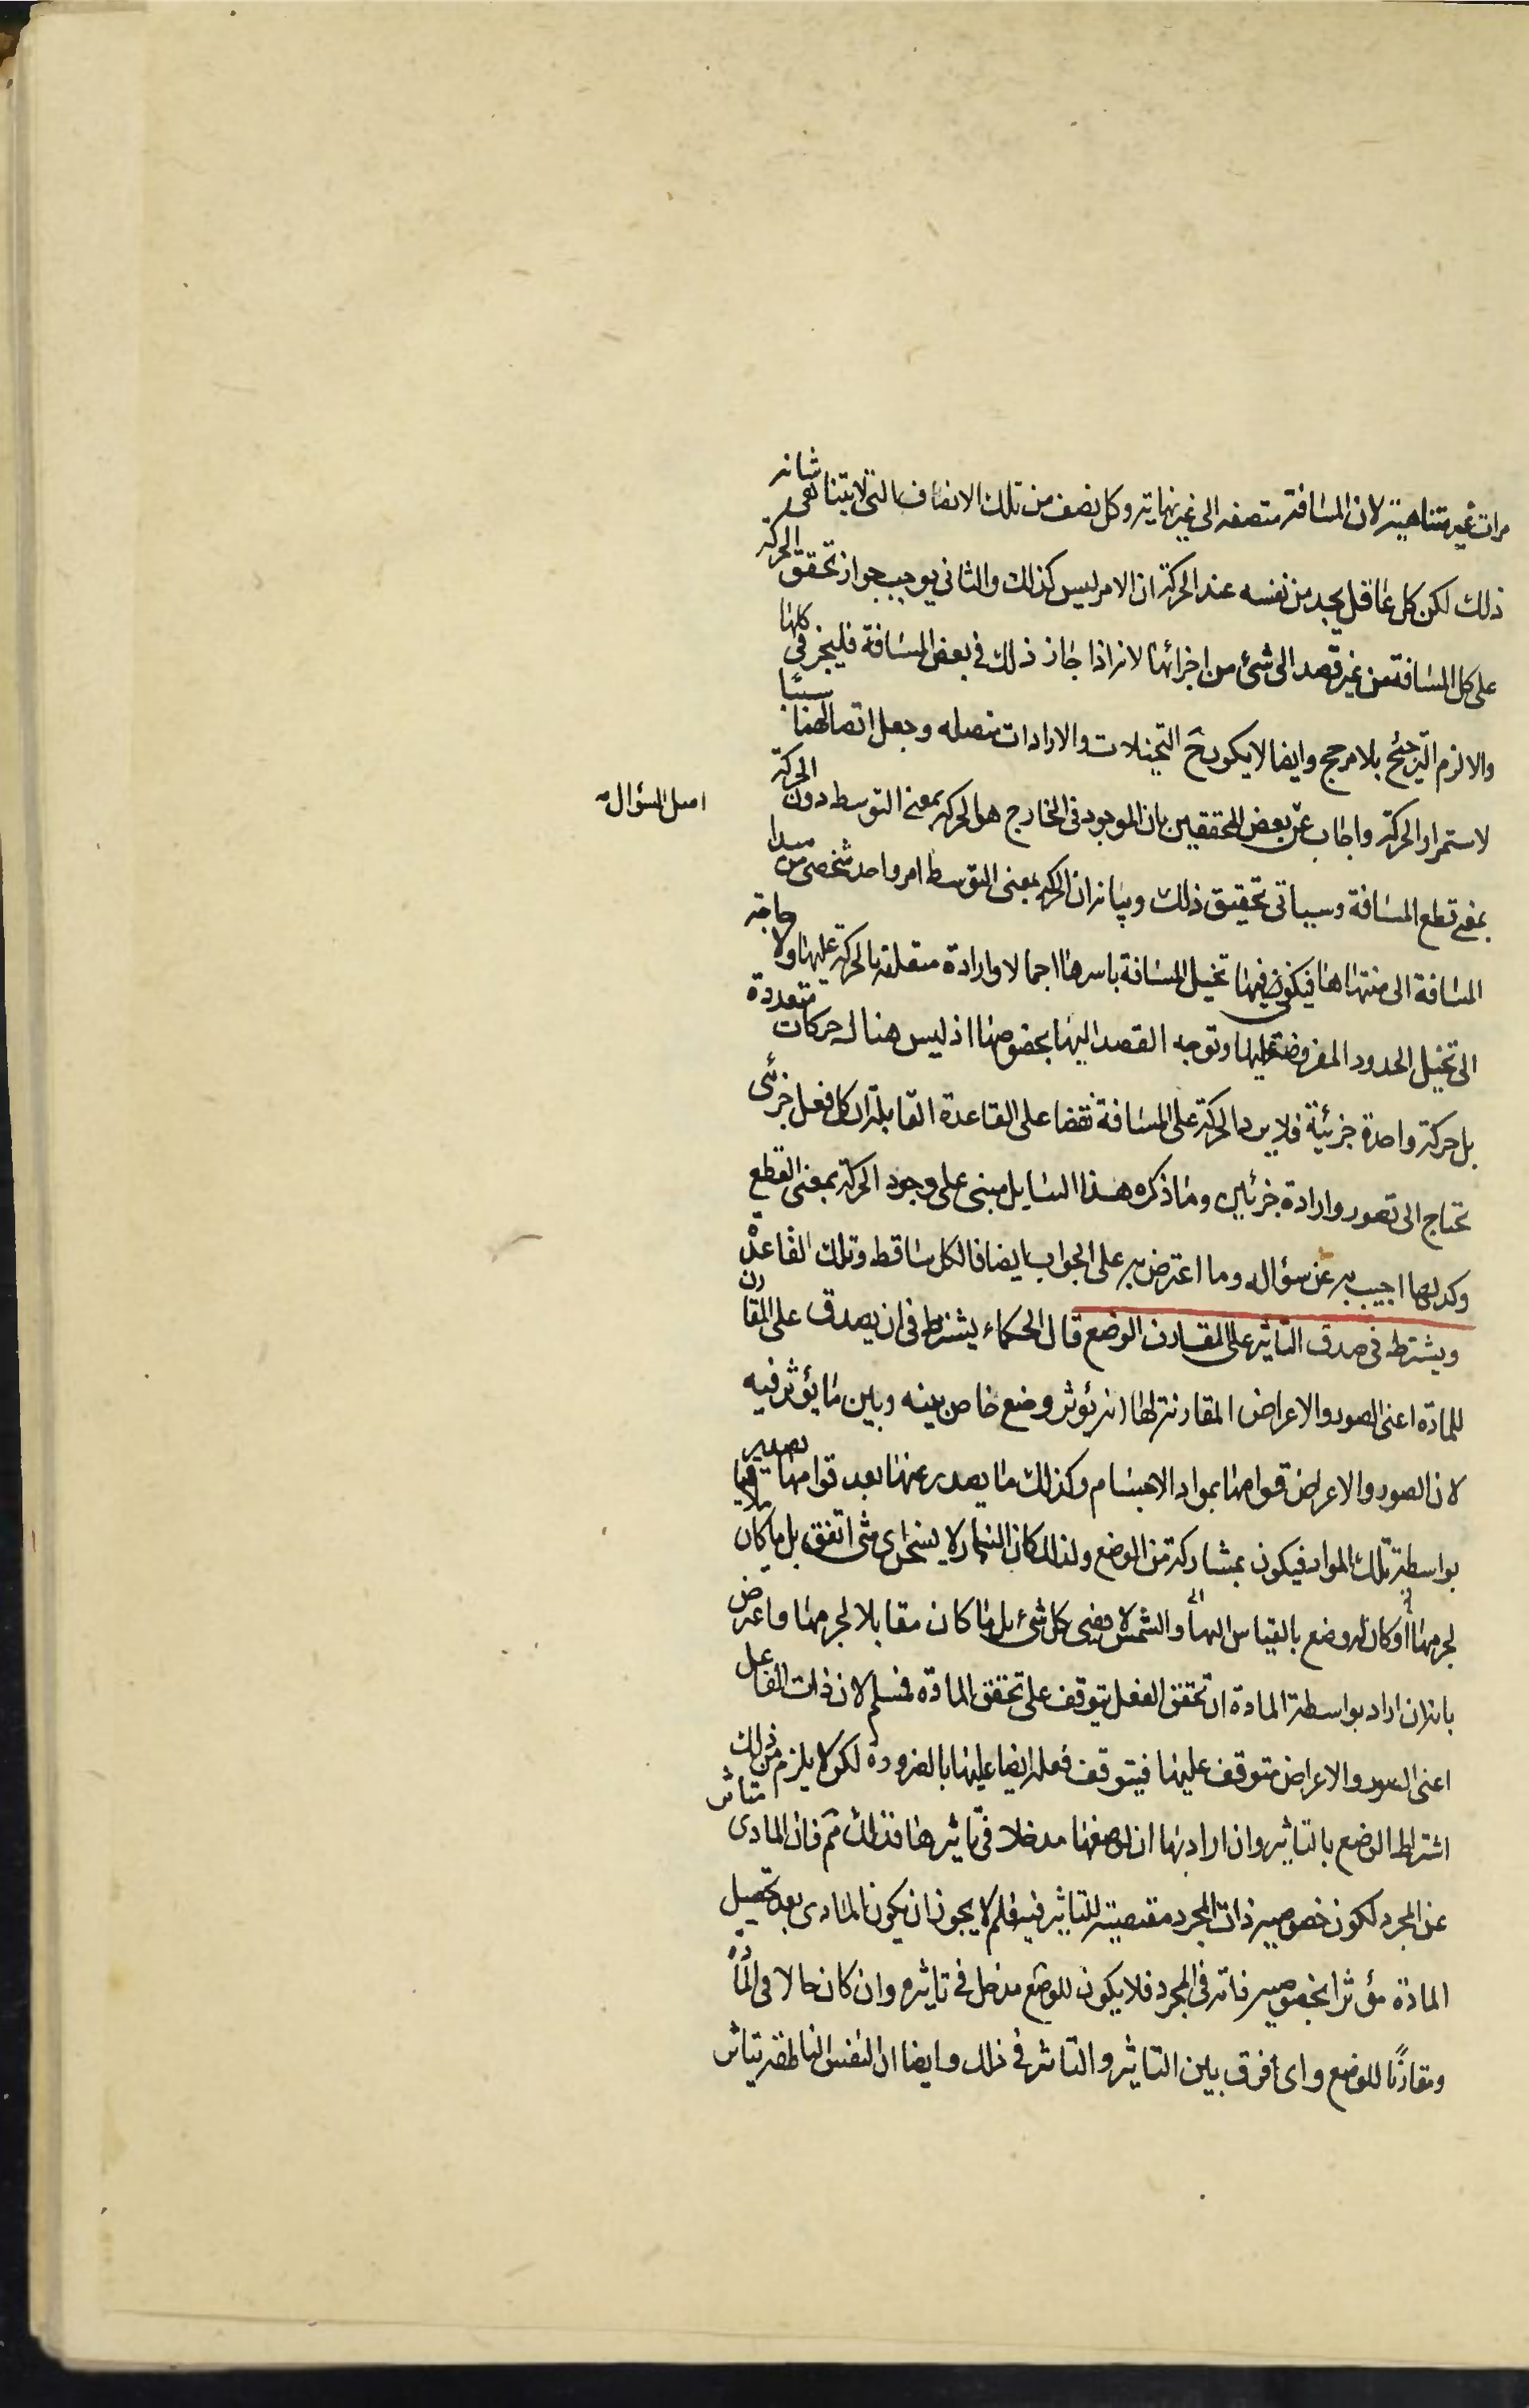 مرات غير متناهية لان المسافة متصفه الى غير نهاية وكل نصف من تلك الانصاف التى لا يتناهى شانه
ذلك لكن كل عاقل يجد من نفسه عند الحركة ان الامر ليس كذلك والثانى يوجب جواز تحقق الحركة
على كل المسافة من غير قصد الى شئ من اجزائها لانه اذا جاز ذلك فى بعض المسافة فليجز فى كلها
والا لزم الترجيح بلا مرجح وايضا لا يكون ح التخيلات والارادات متصله وجعل اتصالها سببا
لاستمرار الحركة واجاب عن بعض المحققين بان الموجود فى الخارج هو الحركة بمعنى التوسط دون الحركة
اصل السؤال
بمعنى قطع المسافة وسياتى تحقيق ذلك وبيانه ان الحركة بمعنى التوسط امر واحد شخصى من مبدا
المسافة الى منتهاها فيكفى فيها تخيل المسافة باسرها اجمالا وارادة متعلقه بالحركة عليها ولا حاجة
الى تخيل الحدود المفروضة عليها وتوجه القصد اليها بخصوصها اذ ليس هناك حركات متعددة
بل حركة واحدة جزئية فلا يرد الحركة على المسافة نقضا على القاعدة القايلة ان كل فعل جزئى
تحتاج الى تصور وارادة جزئيين وما ذكره هذا السايل مبنى على وجود الحركة بمعنى القطع
وكذا ما اجيب به عن سؤاله وما اعترض به على الجواب ايضا فالكل ساقط وتلك القاعدة
ويشترط فى صدق التاثير على المقارن الوضع قال الحكماء يشترط فى ان يصدق على المقارن
للمادة اعنى الصور والاعراض المقارنة لها انه يؤثر وضع خاص بينه وبين ما يؤثر فيه
لان الصور والاعراض قوامها بمواد الاجسام وكذلك ما يصدر عنها بعد قوامها يصدر
بواسطة تلك المواد فيكون بمشاركة من الوضع ولذلك كان النار لا يسخن اى شئ اتفق بل ما كان ملاقيا
لجرمها او كان له وضع بالقياس اليها والشمس لا يضئ كل شئ بل ما كان مقابلا لجرمها واعترض
بانه ان اراد بواسطة المادة ان تحقق الفعل يتوقف على تحقق المادة فمسلم لان ذات الفاعل
اعنى الصور والاعراض متوقف عليها فيتوقف فعله ايضا عليها بالضرورة لكن لا يلزم من ذلك
اشتراط الوضع بالتاثير وان اراد بها ان لوضعها مدخلا فى تاثيرها فذلك مم فان المادى متاثر
عن المجرد لكون خصوصية ذات المجرد مقتضية للتاثير فيه فلم لا يجوز ان يكون المادى بعد تحصيل
المادة مؤثرا بخصوصية ذاته فى المجرد فلا يكون للوضع مدخل فى تاثيره وان كان حالا فى المادة
ومقارنًا للوضع واى فرق بين التاثير والتاثر فى ذلك وايضا ان النفس الناطقه يتاثر